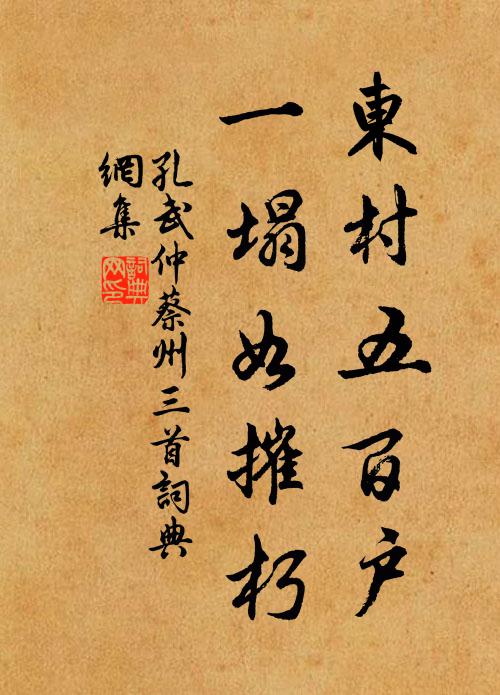 東村五百戶
一塌如摧朽
孔武仲蔡州三首詞典
網集
詞典網印